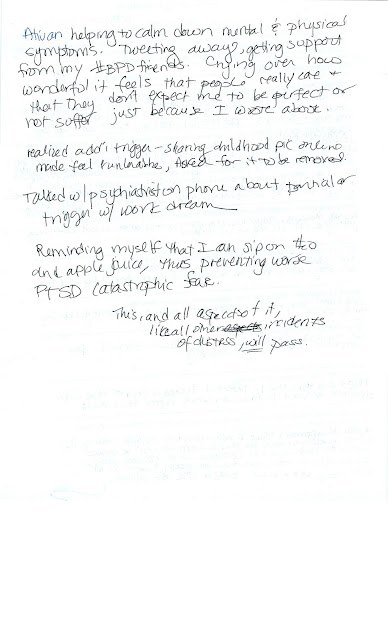 Ativan helping to calm down mental & physical
symptoms. Tweeting away, getting support
from my #BPD friends. Crying over how
wonderful it feels that people really care &
that they don't expect me to be perfect or
not suffer just because I wrote above.
realized add'l trigger - sharing childhood pic online
made feel vunlnerable, Asked for it to be removed.
Talked w/ psychiatrist on phone about potential
trigger w/ work dream
Reminding myself that I can sip on H2O
and apple juice, thus preventing worse
PTSD catastrophic fear.
This, and all aspects of it,
like all other aspects incidents
of distress, will pass.